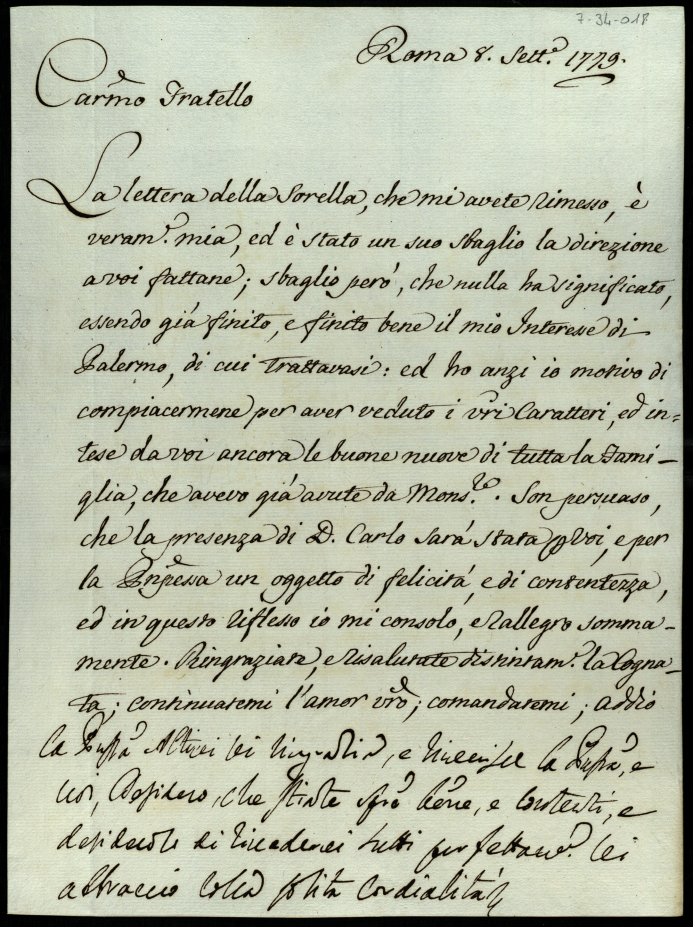 7-34-018
Roma 8. Sett.e 1779.
Carmo Fratello
La lettera della Sorella, che mi avete rimesso, è
veram.e mia, ed è stato un suo sbaglio la direzione
a voi fattane; sbaglio però, che nulla ha significato,
essendo già finito, e finito bene il mio Interesse di
Palermo, di cui trattavasi: ed ho anzi io motivo di
compiacermene per aver veduto i vri Caratteri, ed in=
tese da voi ancora le buone nuove di tutta la Fami-
glia, che avevo già avute da Mons.re. Son persuaso,
che la presenza di D. Carlo sarà stata p voi, e per
la Pnpessa un oggetto di felicità, e di contentezza,
ed in questo riflesso io mi consolo, e rallegro somma-
mente. Ringraziate, e risalutate distintam.e la Cogna-
ta; continuatemi l'amor vro; comandatemi; addio
la, e la, e
voi, Desidero, che state spre bene, e contenti, e
di tutti perfettam.e
abbraccio colla solita cordialità